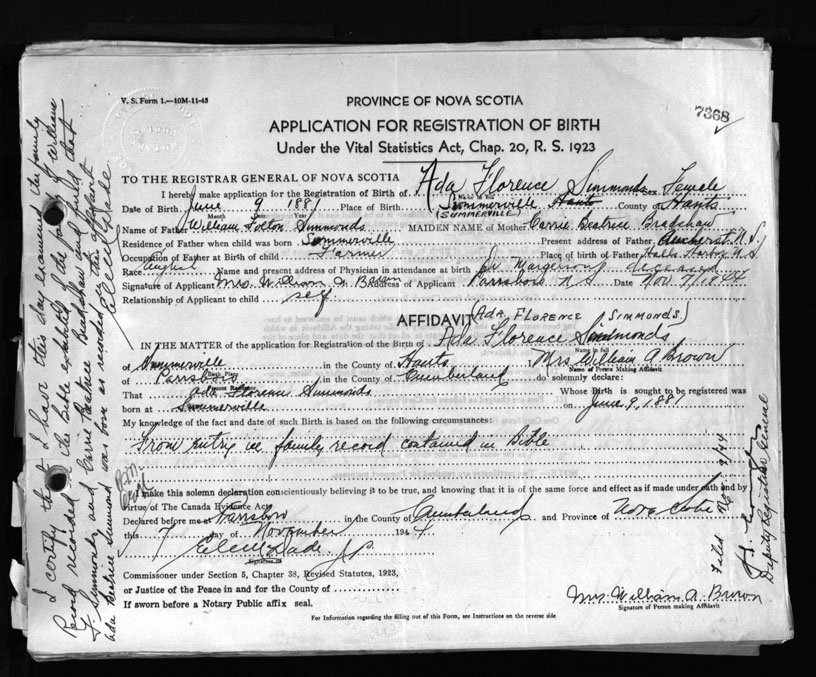 V. S. Form 1.—10M-11-43
PROVINCE OF NOVA SCOTIA
7368
APPLICATION FOR REGISTRATION OF BIRTH
Under the Vital Statistics Act, Chap. 20, R. S. 1923
TO THE REGISTRAR GENERAL OF NOVA SCOTIA
I hereby make application for the Registration of Birth of Ada Florence Simmonds Sex Female
Name in full
Date of Birth June 9 1881 Place of Birth Summerville Hants County of Hants
Month Date Year (SUMMERVILLE)
Name of Father William Simmonds MAIDEN NAME of Mother Carrie Beatrice Bradshaw
Residence of Father when child was born Summerville Present address of Father Amherst N.S.
Occupation of Father at Birth of child Farmer Place of birth of Father N.S.
Race English Name and present address of Physician in attendance at birth Dr. deceased
Signature of Applicant Mrs. William A Brown Address of Applicant Parrsboro N.S. Date Nov 7/1944
Relationship of Applicant to child self
AFFIDAVIT (ADA FLORENCE SIMMONDS)
IN THE MATTER of the application for Registration of the Birth of Ada Florence Simmonds
Name in full
of Summerville in the County of Hants I Mrs William A Brown
Birth Place Name of Person Making Affidavit
of Parrsboro in the County of Cumberland do solemnly declare:
Present Residence
That Ada Florence Simmonds Whose Birth is sought to be registered was
born at Summerville on June 9, 1881
My knowledge of the fact and date of such Birth is based on the following circumstances:
From entry in family record contained in Bible
I make this solemn declaration conscientiously believing it to be true, and knowing that it is of the same force and effect as if made under oath and by
Virtue of The Canada Evidence Act.
Declared before me at Parrsboro in the County of Cumberland and Province of Nova Scotia
this 7 day of November 1944
J.P.
Signature of
Commissioner under Section 5, Chapter 38, Revised Statutes, 1923,
or Justice of the Peace in and for the County of
If sworn before a Notary Public affix seal.
Mrs. William A Brown
Signature of Person making Affidavit
For Information regarding the filling out of this Form, see Instructions on the reverse side
I certify that I have this day examined the family
Record recorded in the Bible exhibited by the family of William
F. Simmonds and Carrie Beatrice Bradshaw and find that
Ada Beatrice Simmond was born as recorded in this affidavit
Filed Nov 9/44
Deputy Registrar General